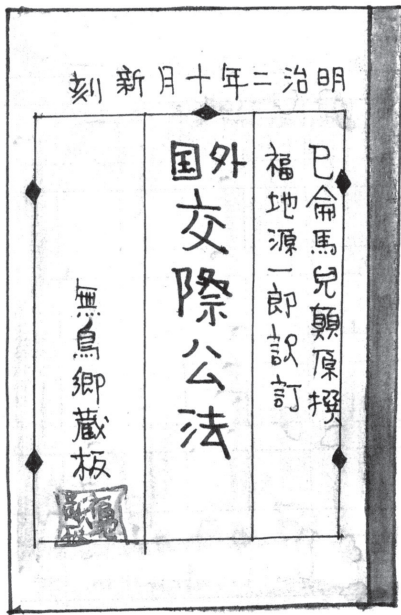 明治二年十月新刻
巳侖馬兒顛原撰
福地源一郎訳訂
外国
交際公法
無鳥郷蔵板